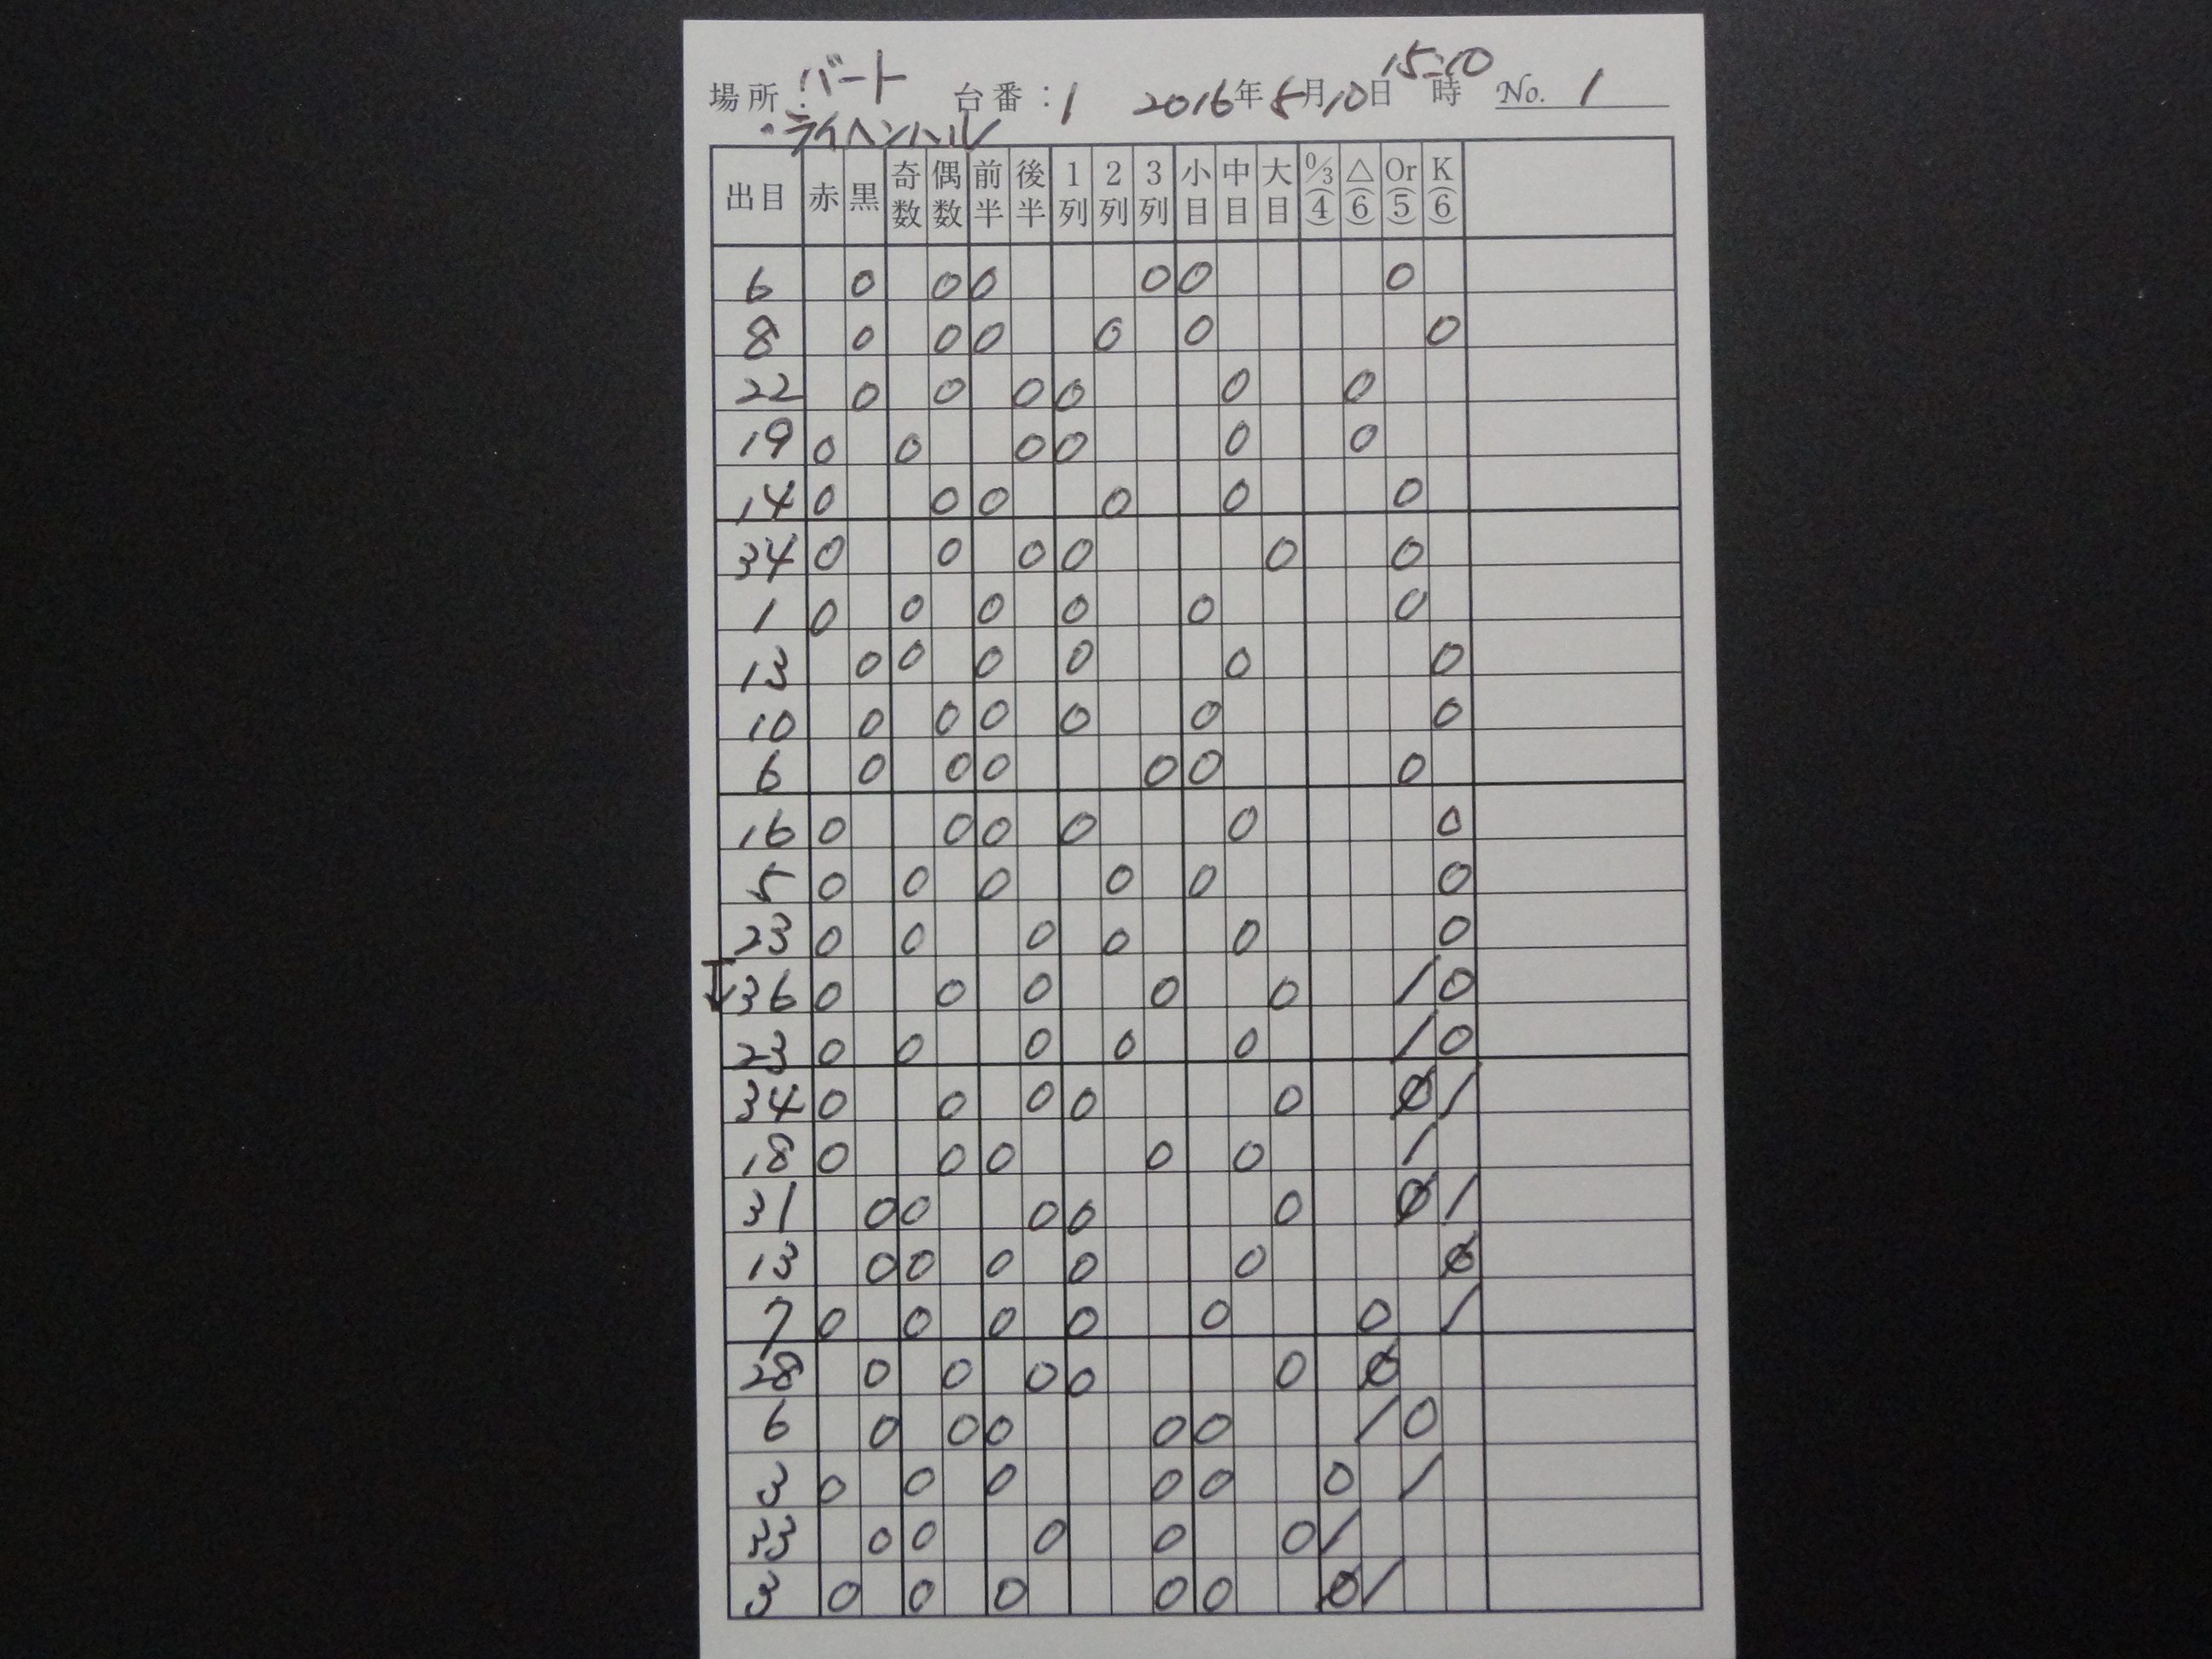 場所：バート 台番：1 2016年5月10日15:10時 No. 1
・ライヘンハル
出目 赤 黒 奇数 偶数 前半 後半 1列 2列 3列 小目 中目 大目 0/3(4) △(6) Or(5) K(6)
6 0 0 0 0 0 0
8 0 0 0 0 0 0
22 0 0 0 0 0 0
19 0 0 0 0 0 0
14 0 0 0 0 0 0
34 0 0 0 0 0 0
1 0 0 0 0 0 0
13 0 0 0 0 0 0
10 0 0 0 0 0 0
6 0 0 0 0 0 0
16 0 0 0 0 0 0
5 0 0 0 0 0 0
23 0 0 0 0 0 0
36 0 0 0 0 0 / 0
23 0 0 0 0 0 / 0
34 0 0 0 0 0 Ø /
18 0 0 0 0 0 /
31 0 0 0 0 0 Ø /
13 0 0 0 0 0 Ø
7 0 0 0 0 0 0 /
28 0 0 0 0 0 Ø
6 0 0 0 0 0 / 0
3 0 0 0 0 0 0 /
33 0 0 0 0 0 /
3 0 0 0 0 0 Ø /